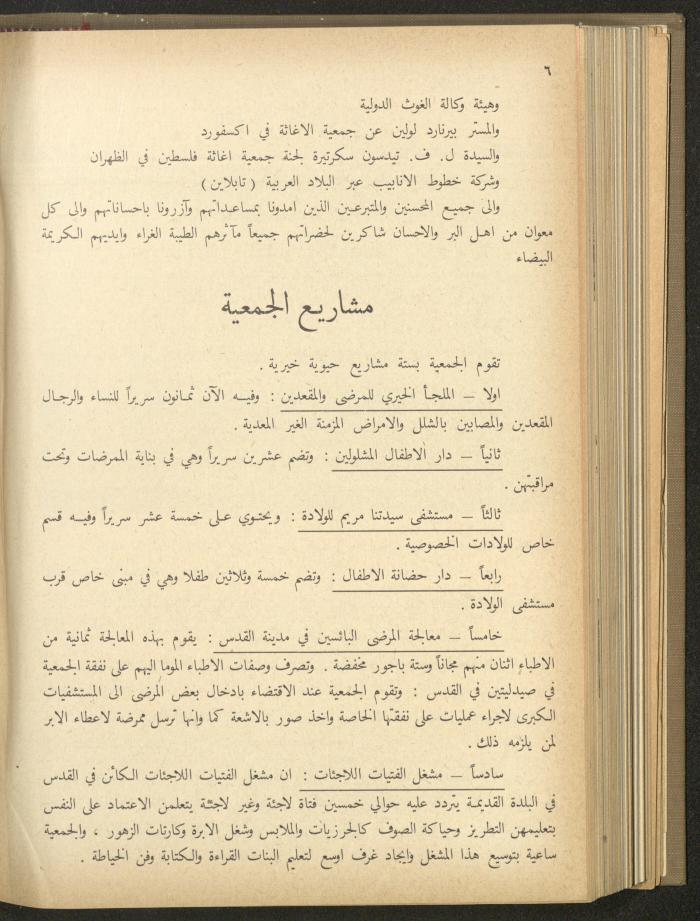 ٦
وهيئة وكالة الغوث الدولية
والمستر بيرنارد لولين عن جمعية الاغاثة في اكسفورد
والسيدة ل. ف. تيدسون سكرتيرة لجنة جمعية اغاثة فلسطين في الظهران
وشركة خطوط الانابيب عبر البلاد العربية ( تابلاين )
والى جميع المحسنين والمتبرعين الذين امدونا بمساعداتهم وآزرونا باحساناتهم والى كل
معوان من اهل البر والاحسان شاكرين لحضراتهم جميعاً مآثرهم الطيبة الغراء وايديهم الكريمة
البيضاء
مشاريع الجمعية
تقوم الجمعية بستة مشاريع حيوية خيرية .
اولا – الملجأ الخيري للمرضى والمقعدين : وفيه الآن ثمانون سريراً للنساء والرجال
المقعدين والمصابين بالشلل والامراض المزمنة الغير المعدية .
ثانياً – دار الاطفال المشلولين : وتضم عشرين سريراً وهي في بناية الممرضات وتحت
مراقبتهن .
ثالثاً – مستشفى سيدتنا مريم للولادة : ويحتوي على خمسة عشر سريراً وفيه قسم
خاص للولادات الخصوصية .
رابعاً – دار حضانة الاطفال : وتضم خمسة وثلاثين طفلا وهي في مبنى خاص قرب
مستشفى الولادة .
خامساً – معالجة المرضى البائسين في مدينة القدس : يقوم بهذه المعالجة ثمانية من
الاطباء اثنان منهم مجاناً وستة باجور مخفضة . وتصرف وصفات الاطباء الموما اليهم على نفقة الجمعية
في صيدليتين في القدس : وتقوم الجمعية عند الاقتضاء بادخال بعض المرضى الى المستشفيات
الكبرى لاجراء عمليات على نفقتها الخاصة واخذ صور بالاشعة كما وانها ترسل ممرضة لاعطاء الابر
لمن يلزمه ذلك .
سادساً – مشغل الفتيات اللاجئات : ان مشغل الفتيات اللاجئات الكائن في القدس
في البلدة القديمة يتردد عليه حوالي خمسين فتاة لاجئة وغير لاجئة يتعلمن الاعتماد على النفس
بتعليمهن التطريز وحياكة الصوف كالجرزيات والملابس وشغل الابرة وكارتات الزهور ، والجمعية
ساعية بتوسيع هذا المشغل وايجاد غرف اوسع لتعليم البنات القراءة والكتابة وفن الخياطة .